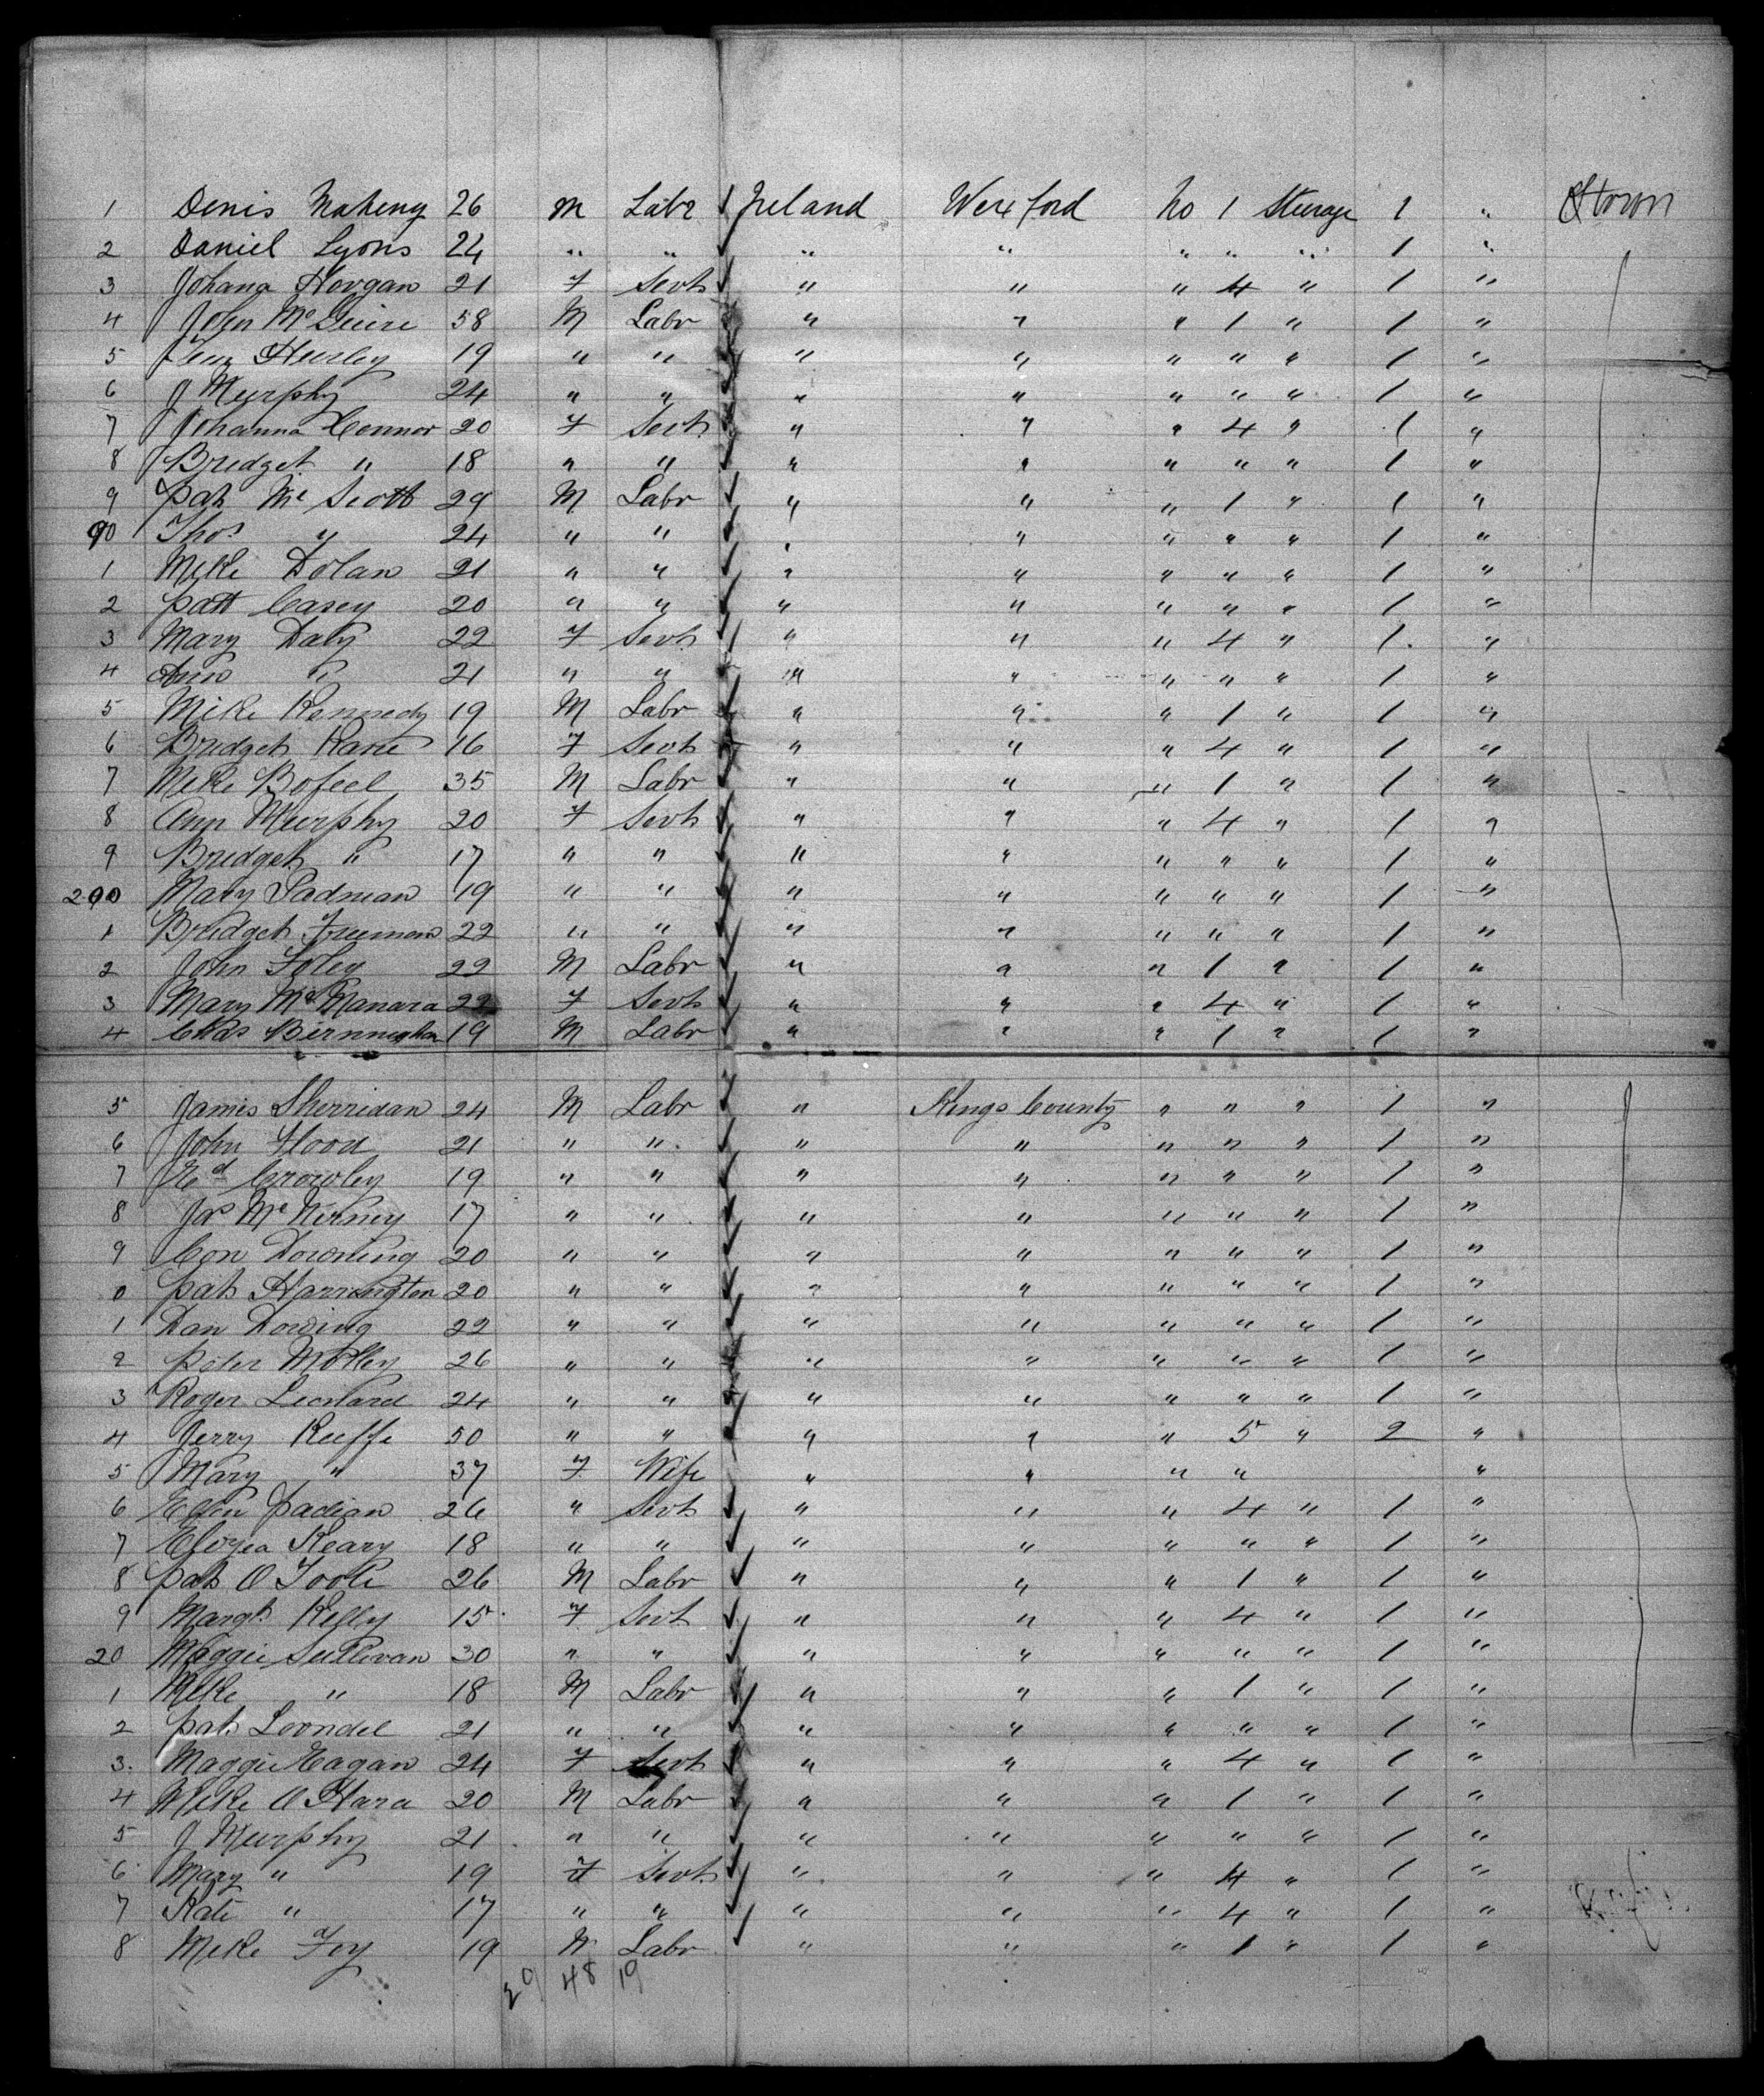 1 Denis Maheny 26 M Labr Ireland Wexford No 1 Steerage 1 " Qtown
2 Daniel Lyons 24 " " " " " " " 1 "
3 Johana Horgan 21 F Servt " " " 4 " 1 "
4 John McGuire 58 M Labr " " " 1 " 1 "
5 Hurley 19 " " " " " " " 1 "
6 J Murphy 24 " " " " " " " 1 "
7 Johanna Connor 20 F Servt " " " 4 " 1 "
8 Bridget " 18 " " " " " " " 1 "
9 Pat Mc Scott 29 M Labr " " " 1 " 1 "
90 Thos " 24 " " " " " " " 1 "
1 Mike Dolan 21 " " " " " " " 1 "
2 Patt Casey 20 " " " " " " " 1 "
3 Mary Daly 22 F Servt " " " 4 " 1 "
4 Ann " 21 " " " " " " " 1 "
5 Mike Kennedy 19 M Labr " " " 1 " 1 "
6 Bridget Kane 16 F Servt " " " 4 " 1 "
7 Mike Bofeel 35 M Labr " " " 1 " 1 "
8 Ann Murphy 20 F Servt " " " 4 " 1 "
9 Bridget " 17 " " " " " " " 1 "
200 Mary Padman 19 " " " " " " " 1 "
1 Bridget Freeman 22 " " " " " " " 1 "
2 John Foley 22 M Labr " " " 1 " 1 "
3 Mary McManara 22 F Servt " " " 4 " 1 "
4 Chas Birmingham 19 M Labr " " " 1 " 1 "
5 James Sherridan 24 M Labr " Kings County " " " 1 "
6 John Flood 21 " " " " " " " 1 "
7 Ed Crowley 19 " " " " " " " 1 "
8 Jas McNerney 17 " " " " " " " 1 "
9 Con Downing 20 " " " " " " " 1 "
0 Pat Harrington 20 " " " " " " " 1 "
1 Dan Dowing 22 " " " " " " " 1 "
2 Peter Molley 26 " " " " " " " 1 "
3 Roger Leonard 24 " " " " " " " 1 "
4 Jerry Keeffe 50 " " " " " 5 " 2 "
5 Mary " 37 F Wife " " " " "
6 Ellen Padian 26 " Servt " " " 4 " 1 "
7 Keary 18 " " " " " " " 1 "
8 Pat O Toole 26 M Labr " " " 1 " 1 "
9 Margt Kelly 15 F Servt " " " 4 " 1 "
20 Maggie Sullivan 30 " " " " " " " 1 "
1 Mike " 18 M Labr " " " 1 " 1 "
2 Pat Loondel 21 " " " " " " " 1 "
3. Maggie Eagan 24 F Servt " " " 4 " 1 "
4 Mike O Hara 20 M Labr " " " 1 " 1 "
5 J Murphy 21 " " " " " " " 1 "
6 Mary " 19 F Servt " " " 4 " 1 "
7 Kate " 17 " " " " " 4 " 1 "
8 Mike Foy 19 M Labr " " " 1 " 1 "
29 48 19